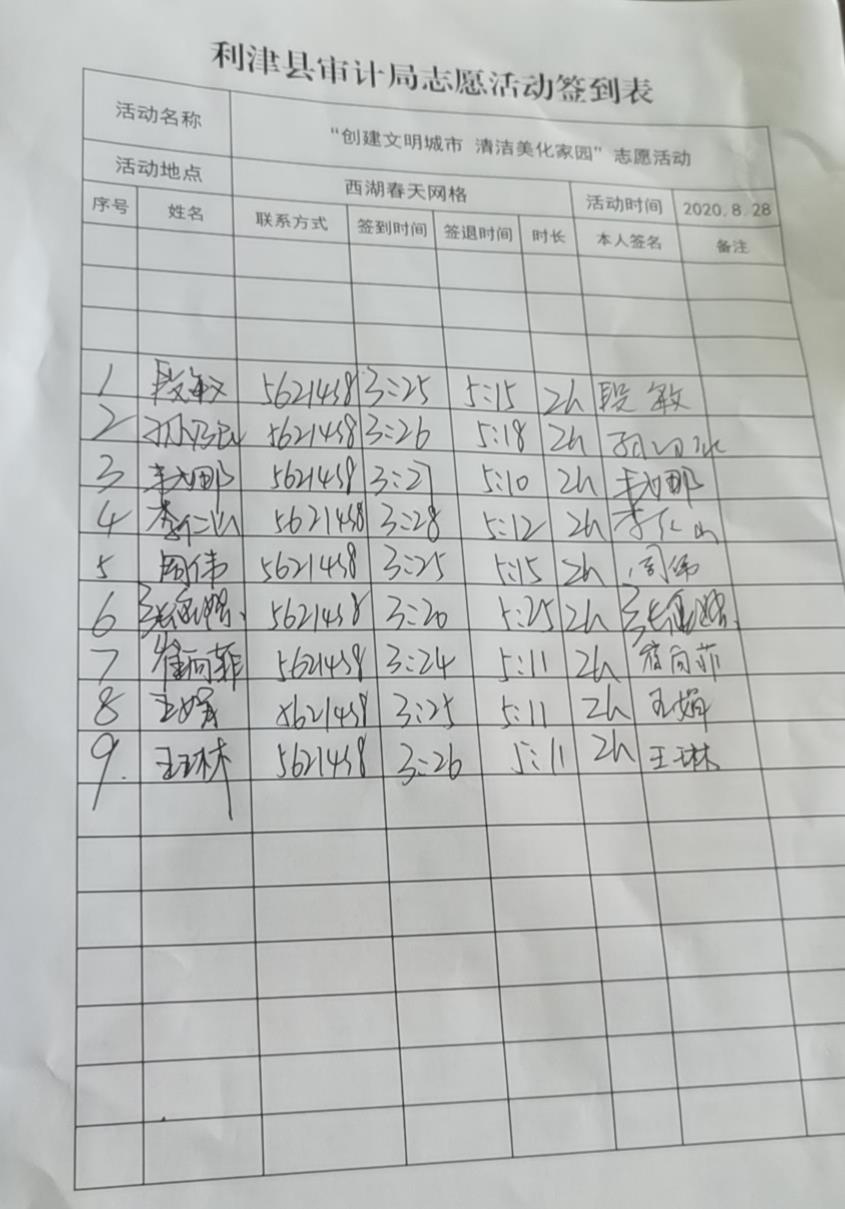 利津县审计局志愿活动签到表
活动名称 “创建文明城市 清洁美化家园”志愿活动
活动地点 西湖春天网格 活动时间 2020.8.28
序号 姓名 联系方式 签到时间 签退时间 时长 本人签名 备注
1 段敏 5621458 3:25 5:15 2h 段敏
2 5621458 3:26 5:18 2h
3 5621458 3:27 5:10 2h
4 李仁山 5621458 3:28 5:12 2h 李仁山
5 周伟 5621458 3:25 5:15 2h 周伟
6 5621458 3:20 5:25 2h
7 崔向菲 5621458 3:24 5:11 2h 崔向菲
8 王娟 5621458 3:25 5:11 2h 王娟
9. 王琳 5621458 3:26 5:11 2h 王琳